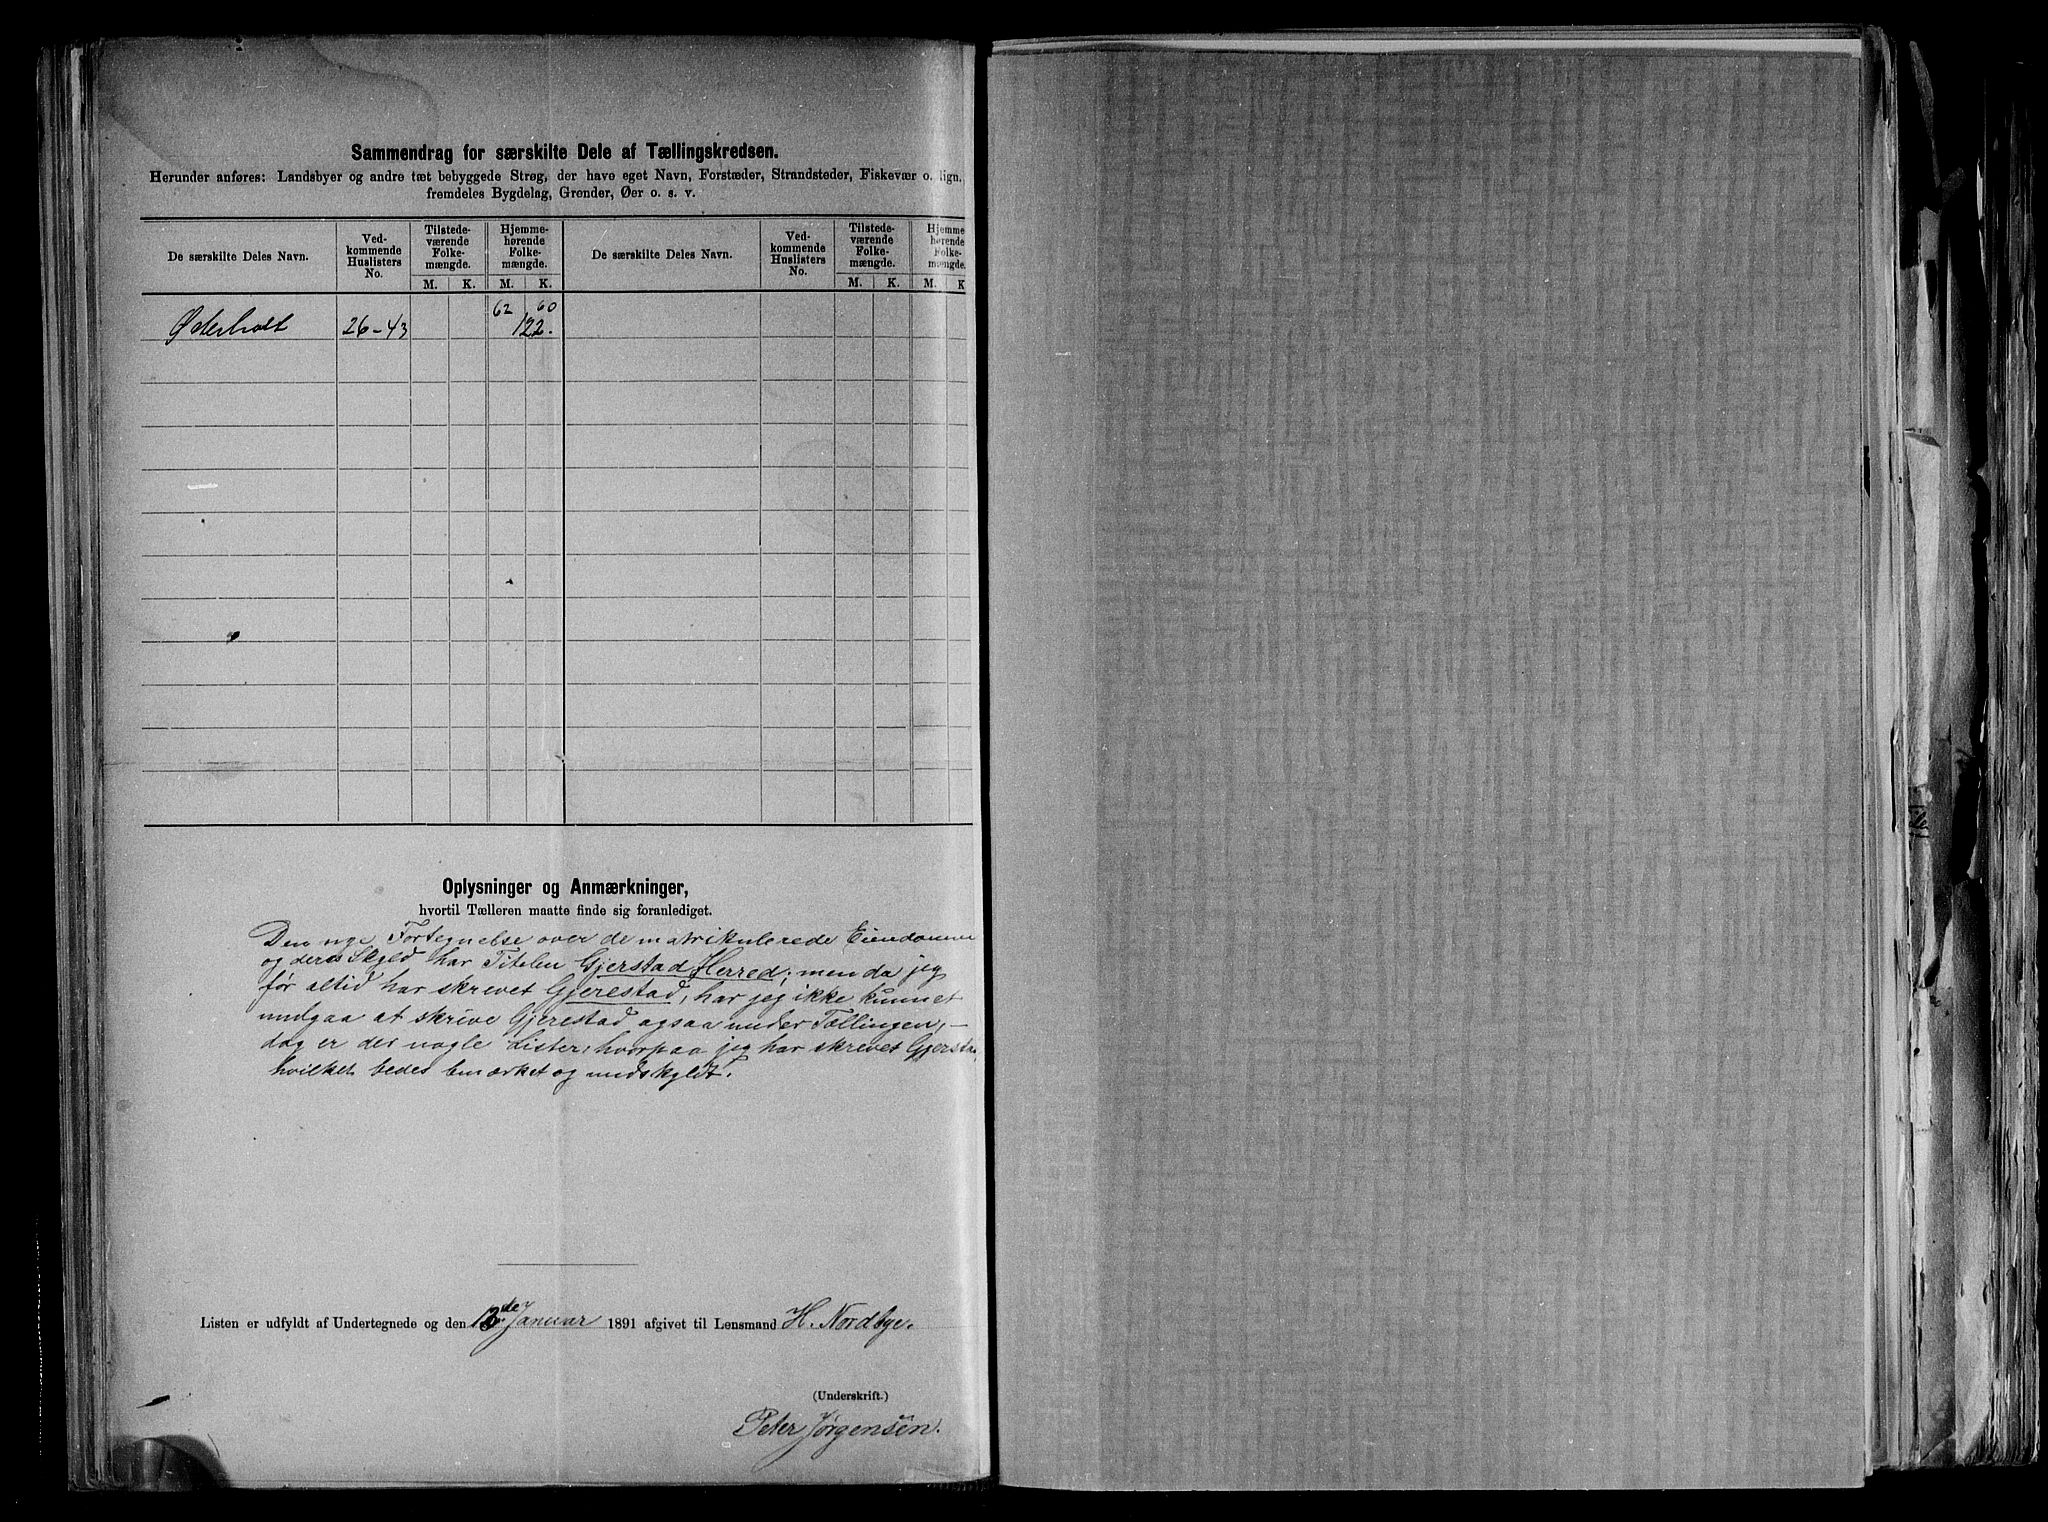 Sammendrag for særskilte Dele af Tællingskredsen.
Herunder anføres: Landsbyer og andre tæt bebyggede Strøg, der have eget Navn, Forstæder, Strandsteder, Fiskevær o. lign.,
fremdeles Bygdelag, Grender, Øer o. s. v.
De særskilte Deles Navn. Ved-kommende Huslisters No. Tilstede-værende Folke-mængde. Hjemme-hørende Folke-mængde. De særskilte Deles Navn. Ved-kommende Huslisters No. Tilstede-værende Folke-mængde. Hjemme-hørende Folke-mængde.
M. K. M. K. M. K. M. K
62 60
Østerholt 26-43 122.
Oplysninger og Anmærkninger,
hvortil Tælleren maatte finde sig foranlediget.
Den nye Fortegnelse over de matrikulerede Eiendomme
og deres Skyld har Titelen Gjerstad Herred; men da jeg
før altid har skrevet Gjerestad, har jeg ikke kunnet
undgaa at skrive Gjerestad ogsaa under Tællingen, –
dog er der nogle Lister, hvorpaa jeg har skrevet Gjersta
hvilket bedes bemærket og undskyldt.
Listen er udfyldt af Undertegnede og den 13de Januar 1891 afgivet til Lensmand H. Nordbye.
(Underskrift.)
Peter Jørgensen.